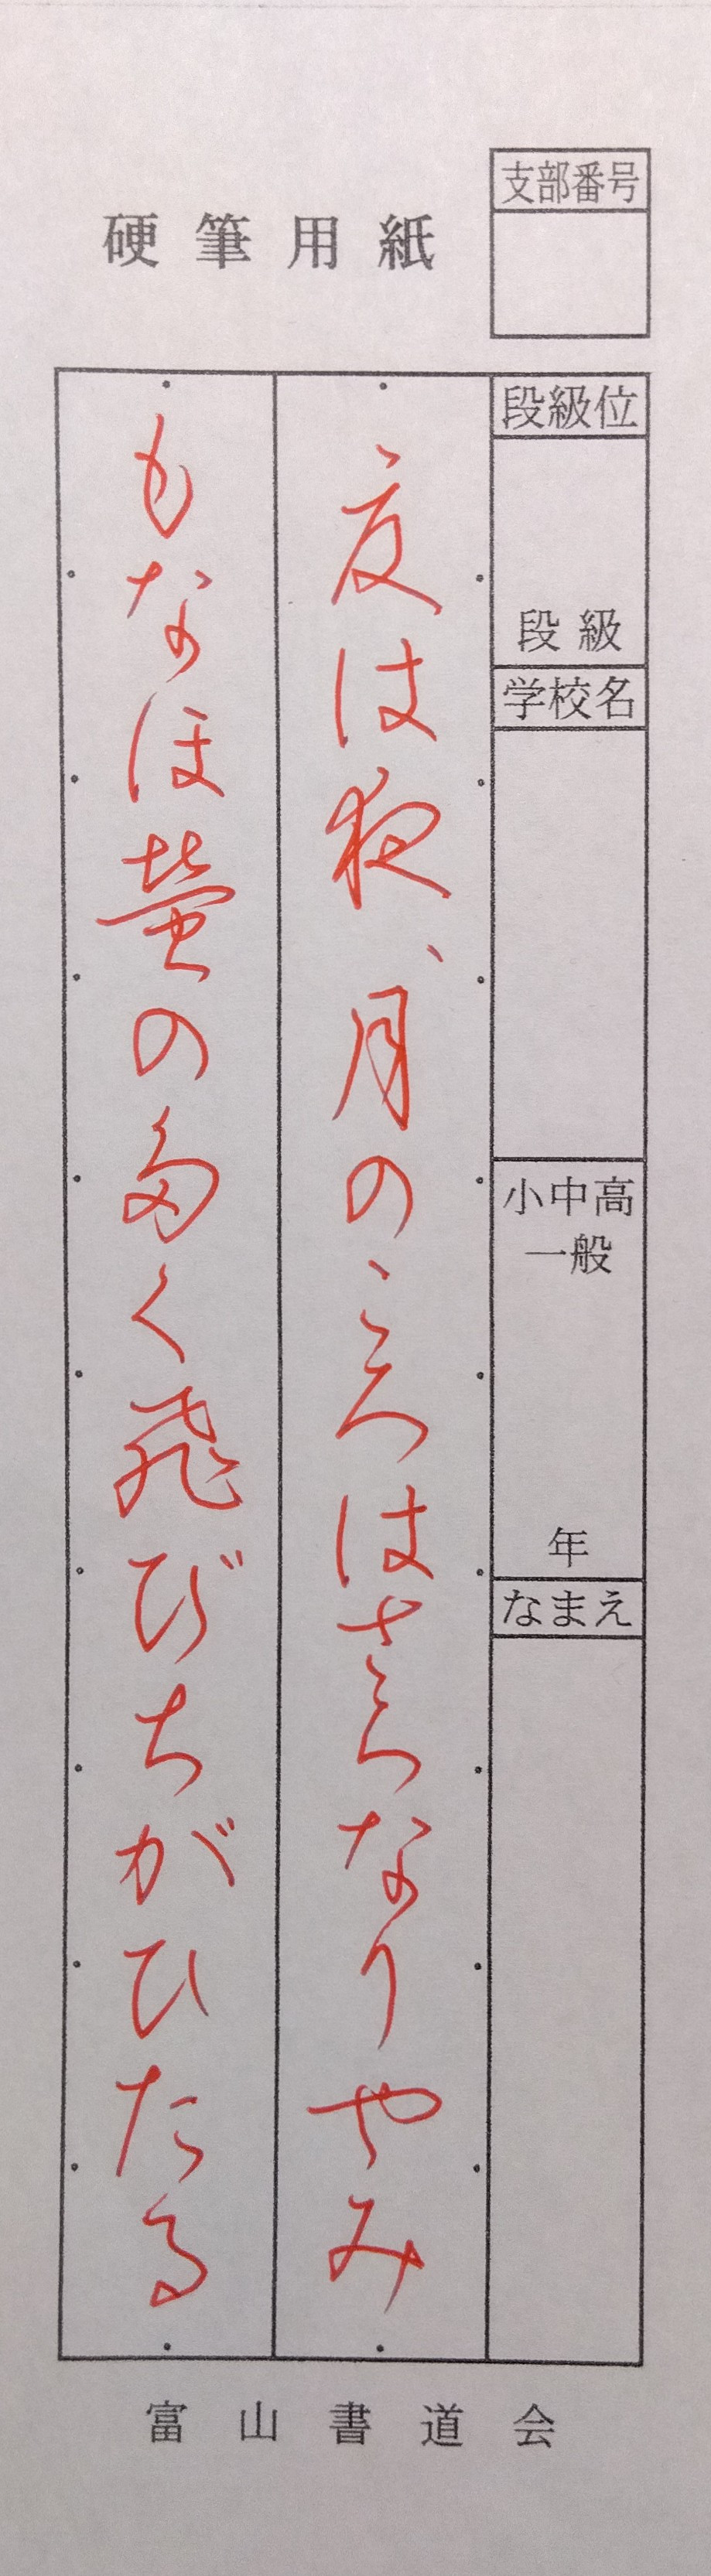 硬筆用紙
支部番号
段級位
段級
学校名
小中高
一般
年
なまえ
夏は夜、月のころはさらなりやみ
もなほ蛍の多く飛びちがひたる
富山書道会